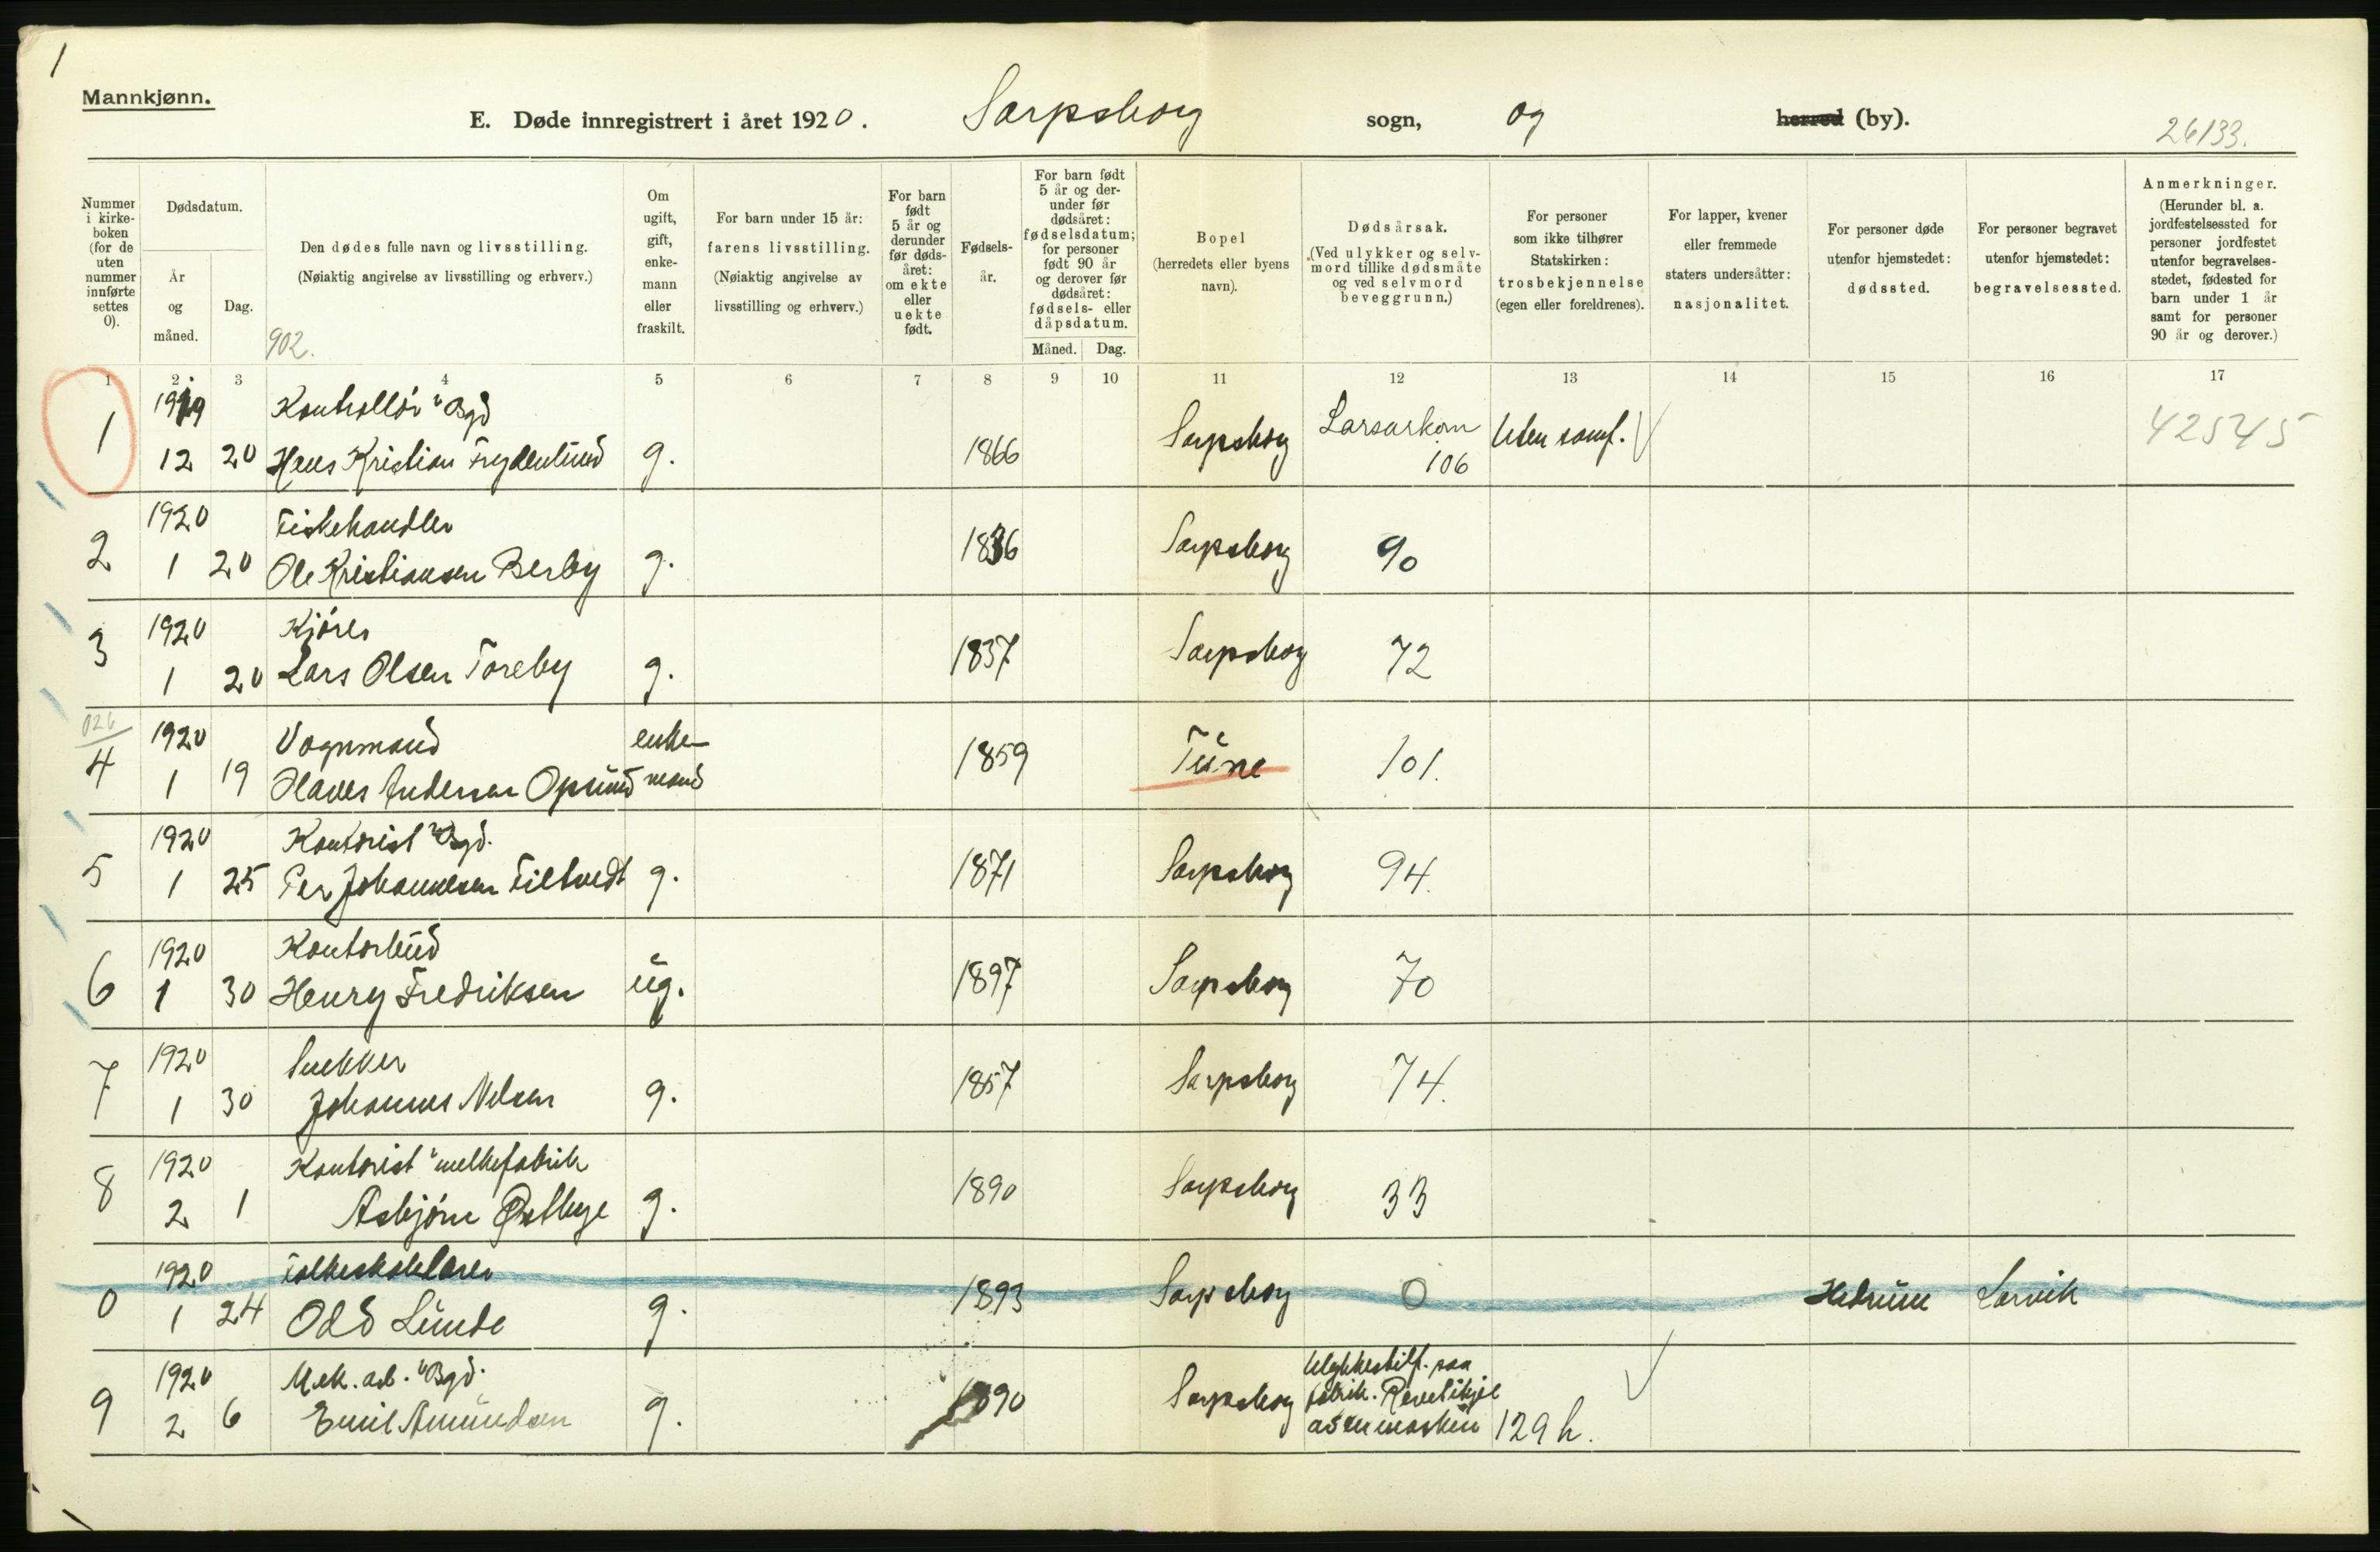 1
Mannkjønn.
E. Døde innregistrert i året 1920. Sarpsborg sogn, og herred (by).
26133.
Nummer i kirkeboken (for de uten nummer innførte settes 0).
Dødsdatum.
År og måned.
Dag.
Den dødes fulle navn og livsstilling.
(Nøiaktig angivelse av livsstilling og erhverv.)
902.
Om ugift, gift, enkemann eller fraskilt.
For barn under 15 år: farens livsstilling. (Nøiaktig angivelse av livsstilling og erhverv.)
For barn født 5 år og derunder før dødsåret: om ekte eller uekte født.
Fødselsår.
For barn født 5 år og derunder før dødsåret: fødselsdatum; for personer født 90 år og derover før dødsåret: fødsels- eller dåpsdatum.
Måned. Dag.
Bopel (herredets eller byens navn).
Dødsårsak. (Ved ulykker og selvmord tillike dødsmåte og ved selvmord beveggrunn.)
For personer som ikke tilhører Statskirken: trosbekjennelse (egen eller foreldrenes).
For lapper, kvener eller fremmede staters undersåtter: nasjonalitet.
For personer døde utenfor hjemstedet: dødssted.
For personer begravet utenfor hjemstedet: begravelsessted.
Anmerkninger. (Herunder bl. a. jordfestelsessted for personer jordfestet utenfor begravelsesstedet, fødested for barn under 1 år samt for personer 90 år og derover.)
1 2 3 4 5 6 7 8 9 10 11 12 13 14 15 16 17
1919 Kontrollør v Bgd
1 12 20 Hans Kristian Frydenlund g. 1866 Sarpsborg Larsarkom 106 Uden samf. 42545
1920 Fiskehandler
2 1 20 Ole Kristiansen Berby g. 1836 Sarpsborg 90
1920 Kjörer
3 1 20 Lars Olsen Toreby g. 1837 Sarpsborg 72
026
1920 Vognmand enke-
4 1 19 Hans Andersen Opsund mand 1859 Tune 101.
1920 Kontorist v Bgd.
5 1 25 Per Johannesen Filtvedt g. 1871 Sarpsborg 94.
1920 Kontorbud
6 1 30 Henry Fredriksen ug. 1897 Sarpsborg 70
1920 Snekker
7 1 30 Johannes Nilsen g. 1857 Sarpsborg 74.
1920 Kontorist v melkefabrik
8 2 1 Asbjørn Østbye g. 1890 Sarpsborg 33
1920 Folkeskolelærer
0 1 24 Odd Lunde g. 1893 Sarpsborg 0 Hedrum Larvik
1920 Mek. arb. v Bgd.
9 2 6 Emil Amundsen g. 1890 Sarpsborg Ulykkestilf. paa
fabrik.
129 h.